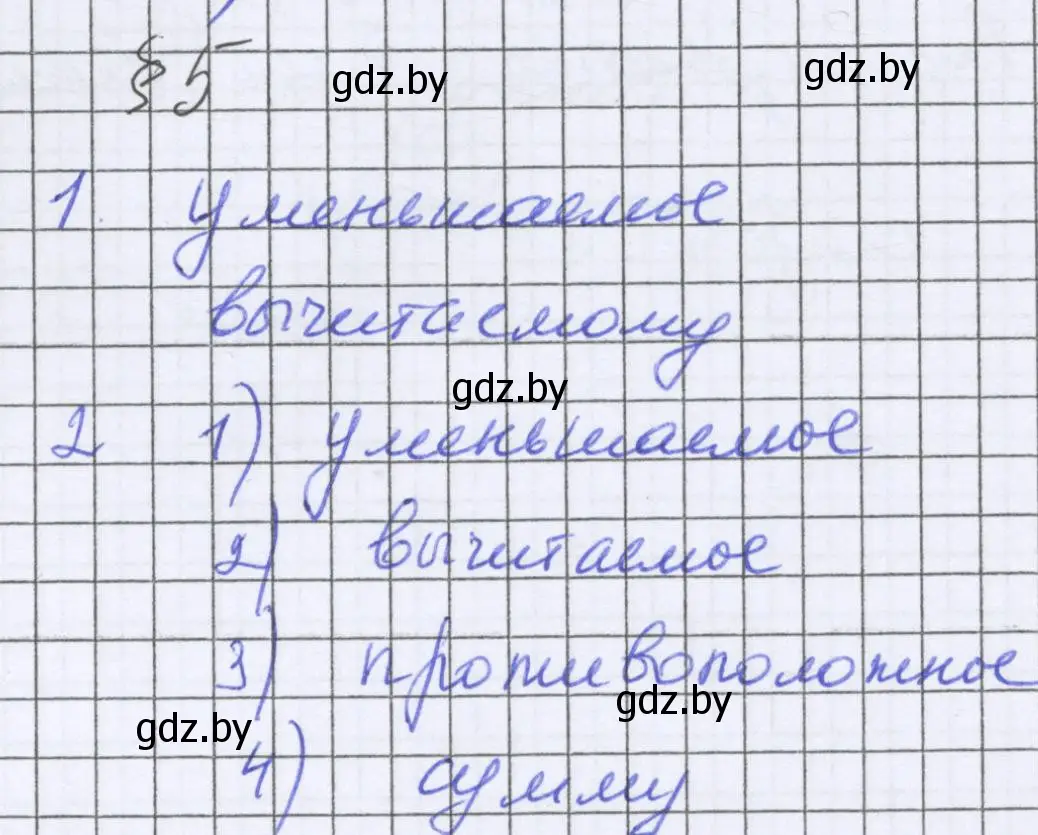 § 5 gdz.by gdz.by
1 Уменьшаемое
вычитаемому
gdz.by
2 1) уменьшаемое
2) вычитаемое
3) противоположное
gdz.by gdz.by
4) сумму